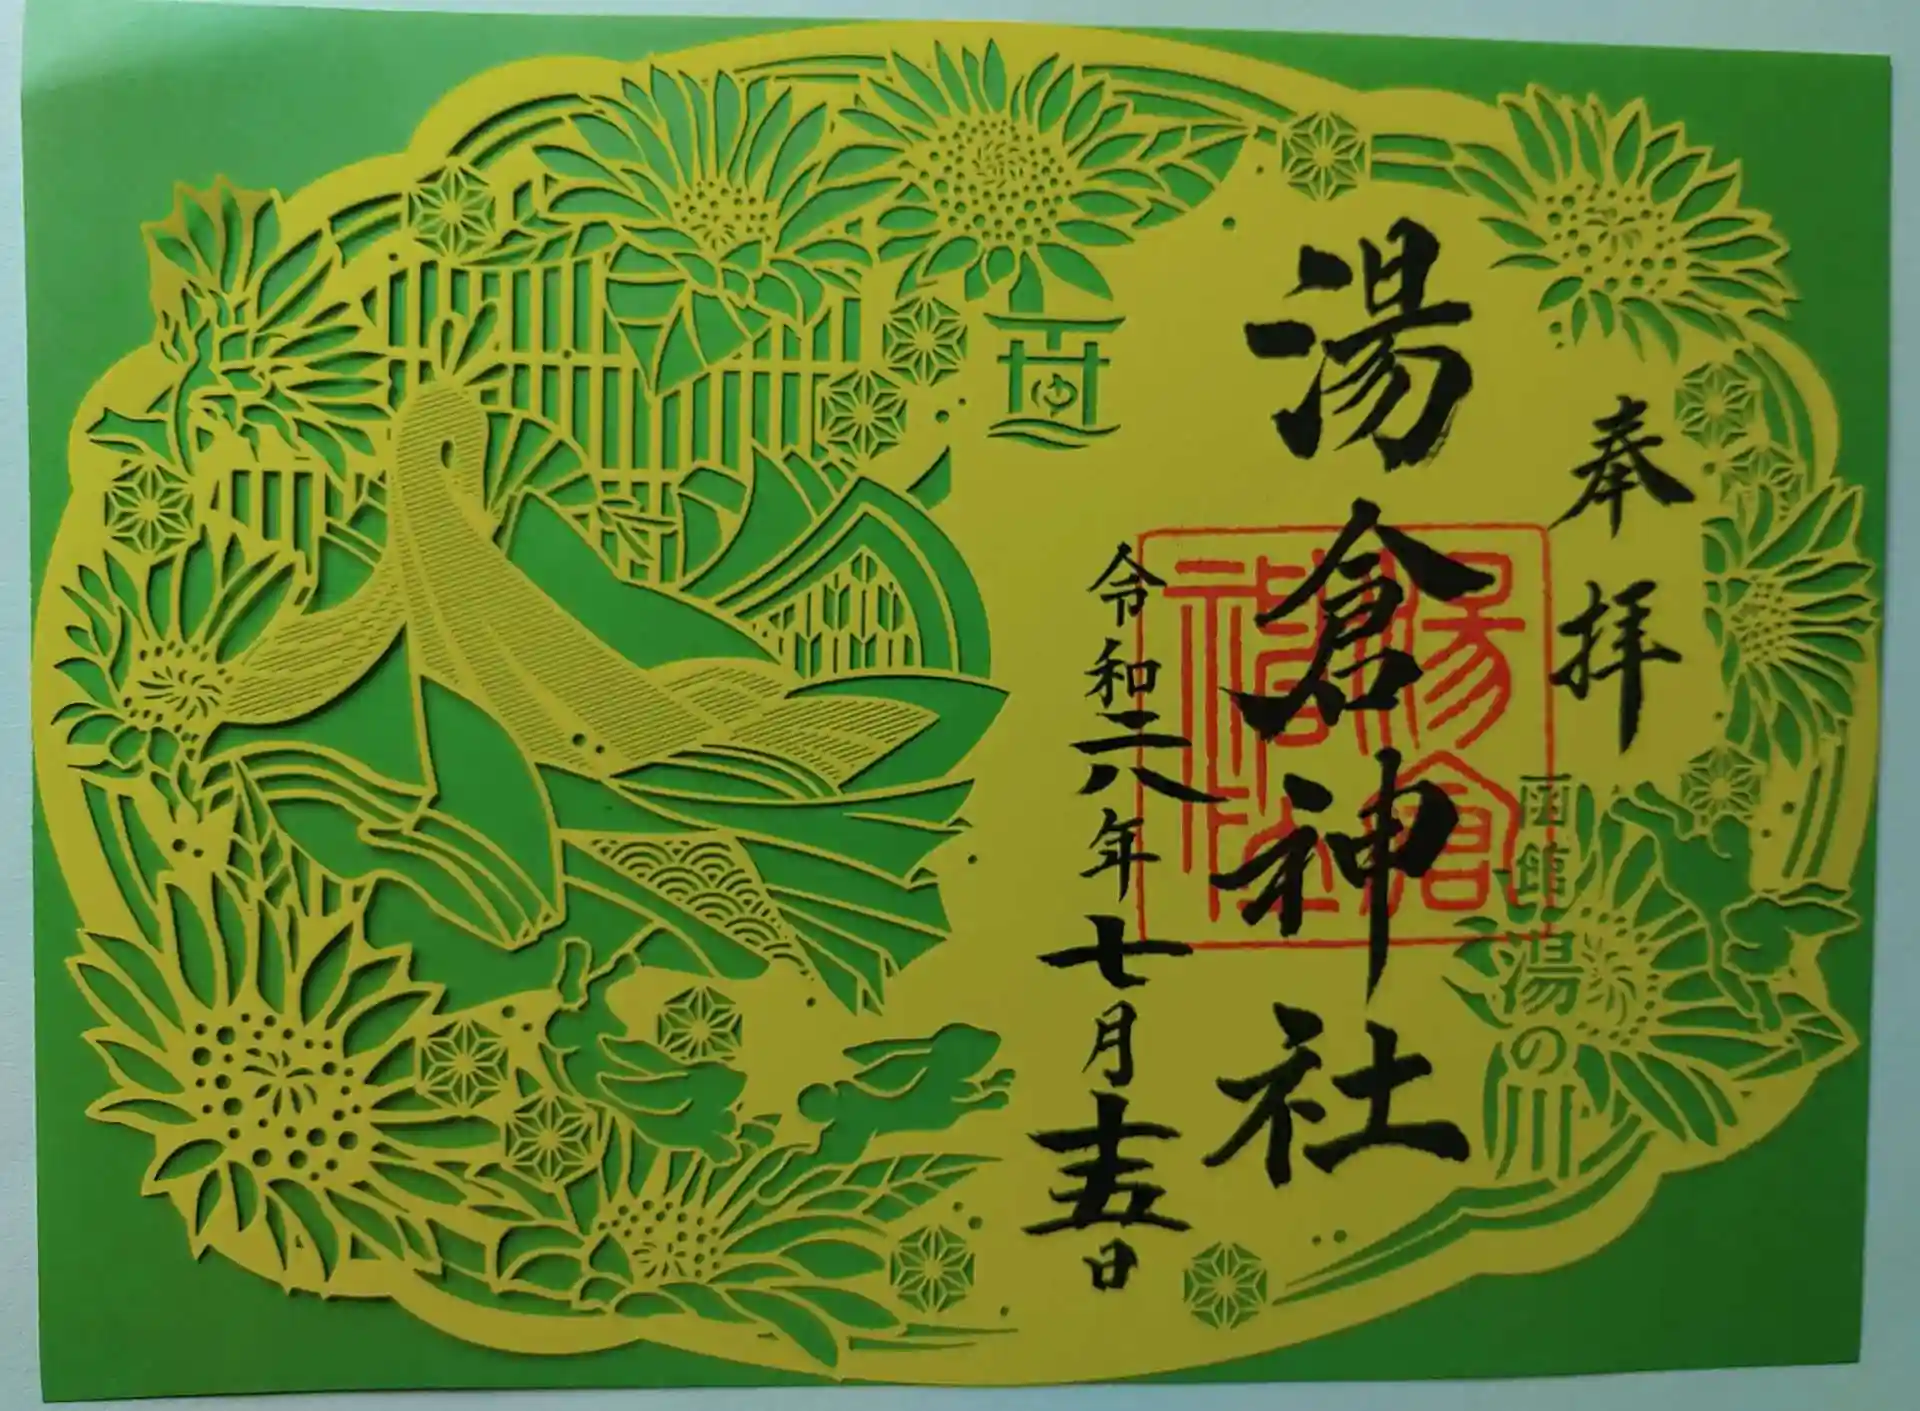 奉拝
函館湯の川
湯倉神社
湯倉神社
令和六年七月十五日
ゆ